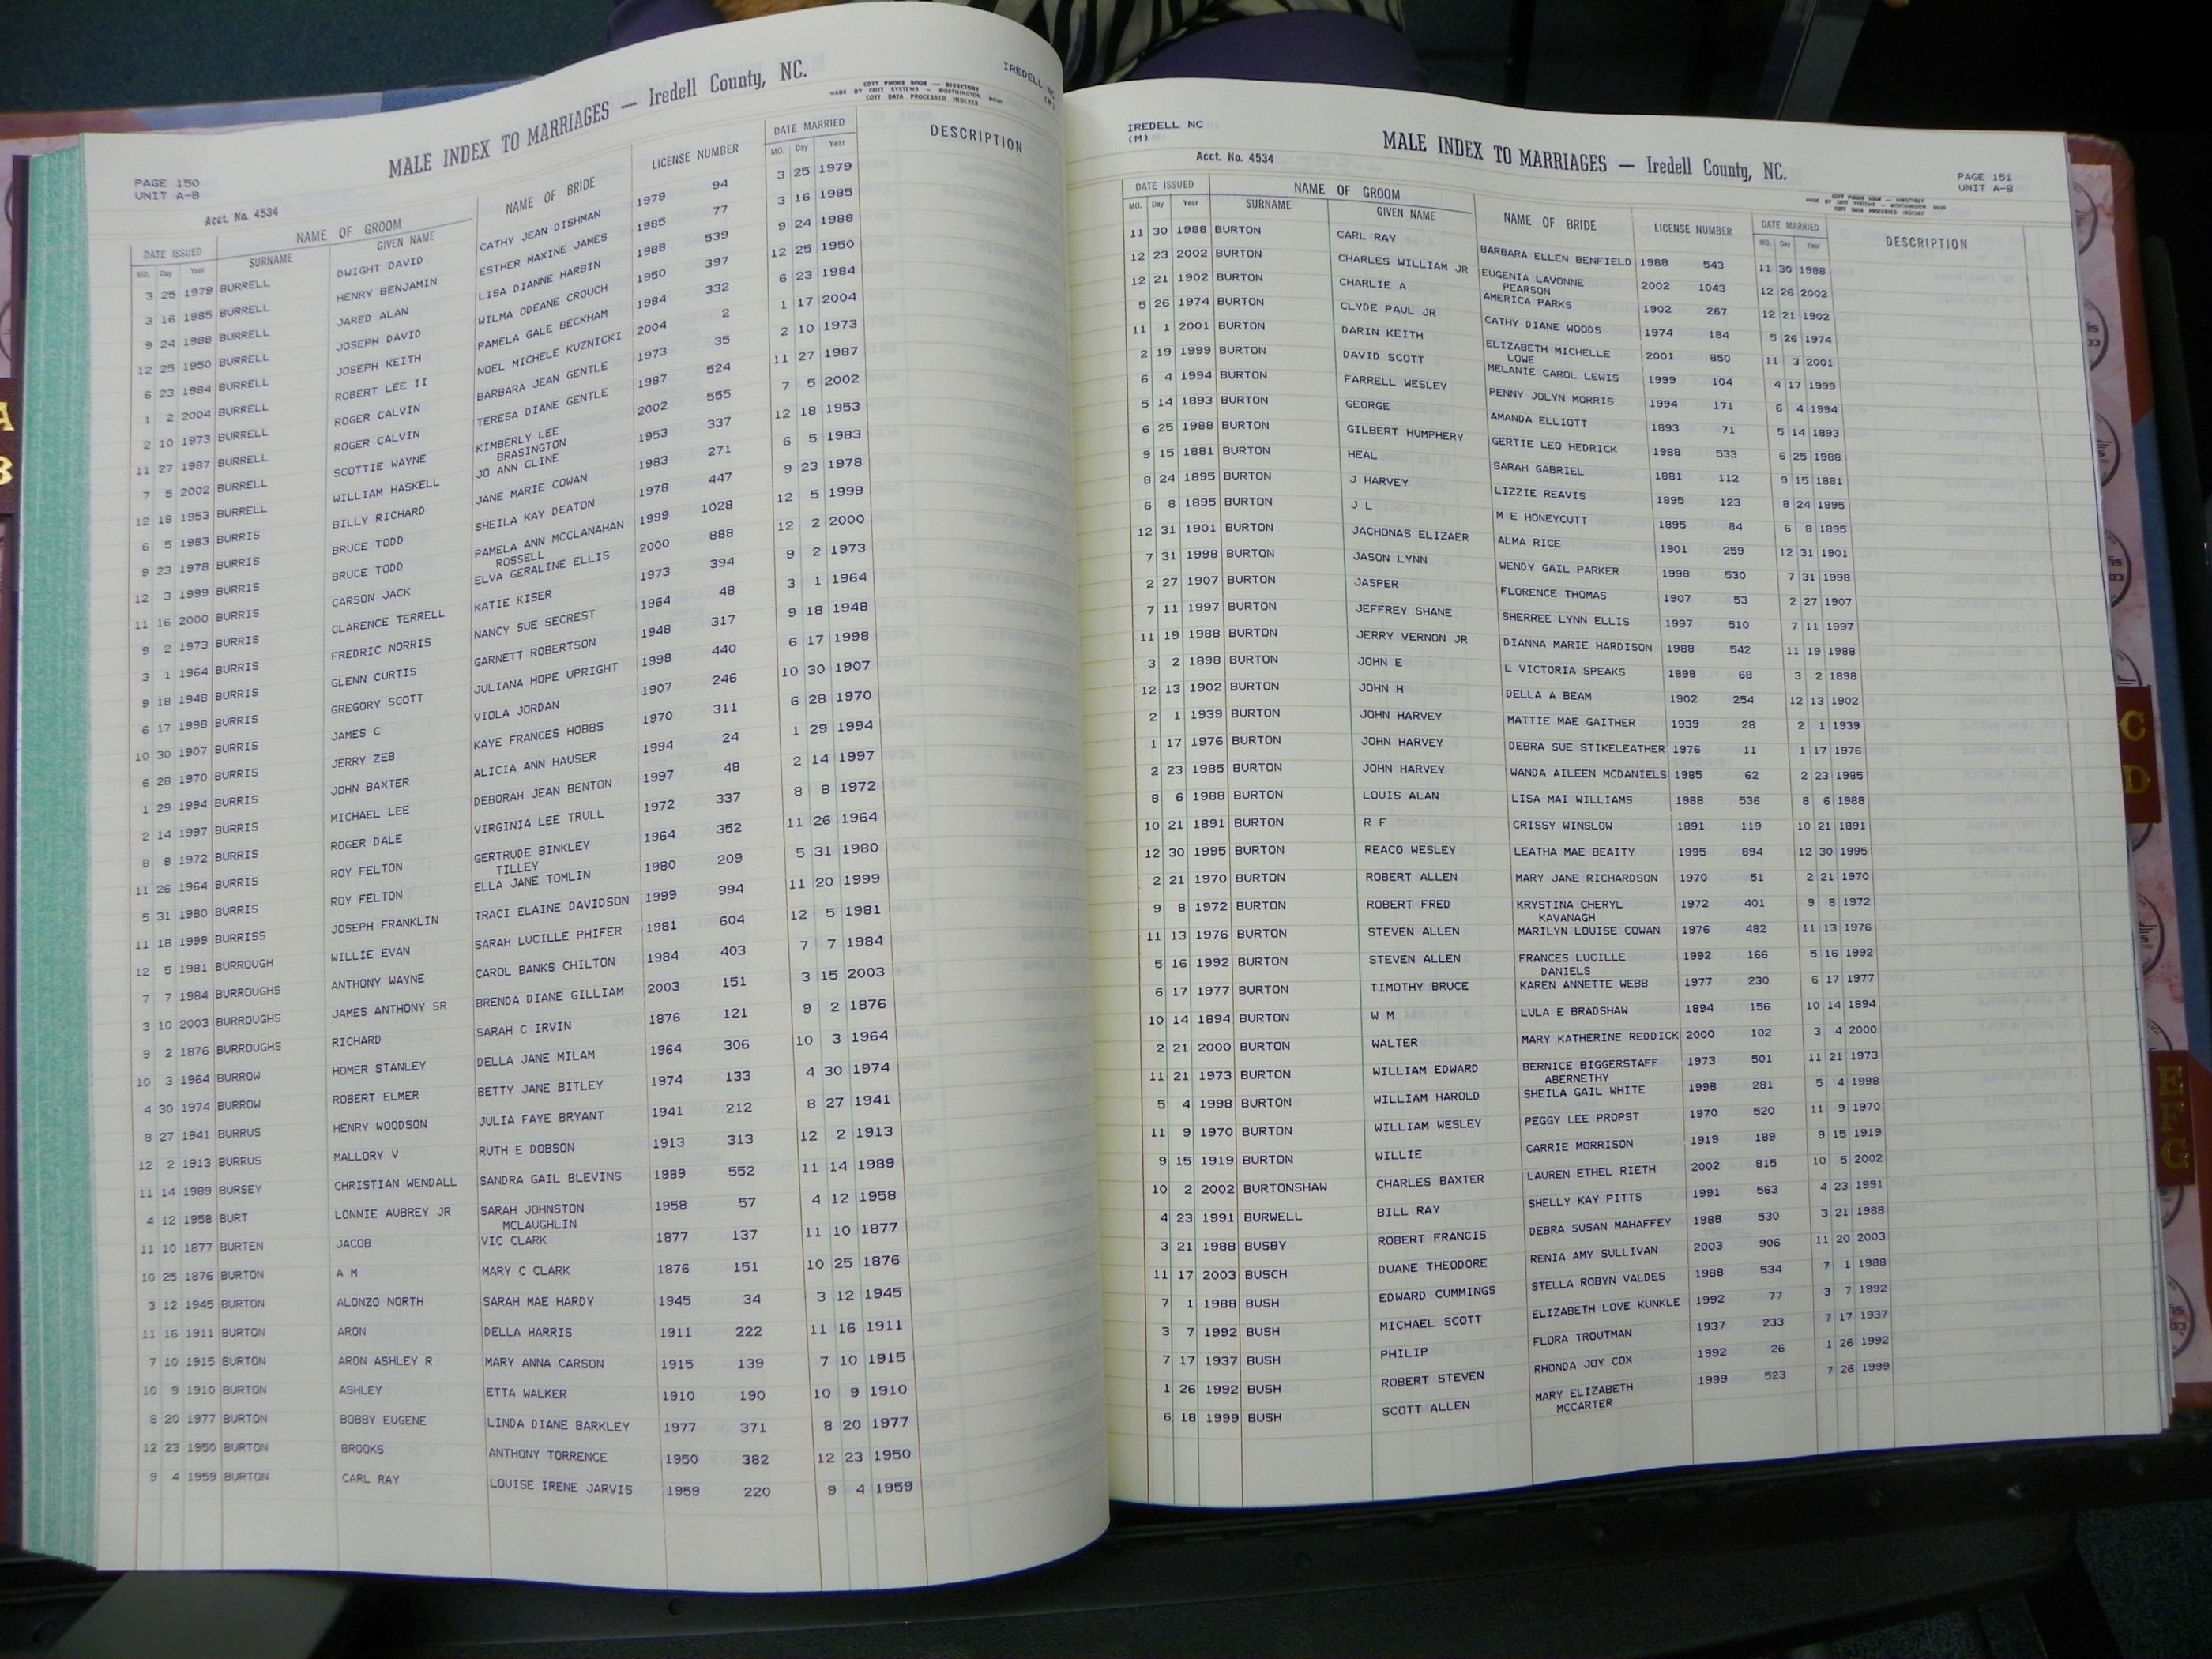 IREDELL NC
(M)
MALE INDEX TO MARRIAGES — Iredell County, NC.
COTT PHONE BOOK — DIRECTORY
MADE BY COTT SYSTEMS — WORTHINGTON OHIO
COTT DATA PROCESSED INDEXER
PAGE 150
UNIT A-B
Acct. No. 4534
DATE ISSUED NAME OF GROOM NAME OF BRIDE LICENSE NUMBER DATE MARRIED DESCRIPTION
MO. Day Year SURNAME GIVEN NAME MO. Day Year
3 25 1979 BURRELL DWIGHT DAVID CATHY JEAN DISHMAN 1979 94 3 25 1979
3 16 1985 BURRELL HENRY BENJAMIN ESTHER MAXINE JAMES 1985 77 3 16 1985
9 24 1988 BURRELL JARED ALAN LISA DIANNE HARBIN 1988 539 9 24 1988
12 25 1950 BURRELL JOSEPH DAVID WILMA ODEANE CROUCH 1950 397 12 25 1950
6 23 1984 BURRELL JOSEPH KEITH PAMELA GALE BECKHAM 1984 332 6 23 1984
1 2 2004 BURRELL ROBERT LEE II NOEL MICHELE KUZNICKI 2004 2 1 17 2004
2 10 1973 BURRELL ROGER CALVIN BARBARA JEAN GENTLE 1973 35 2 10 1973
11 27 1987 BURRELL ROGER CALVIN TERESA DIANE GENTLE 1987 524 11 27 1987
7 5 2002 BURRELL SCOTTIE WAYNE KIMBERLY LEE 2002 555 7 5 2002
BRASINGTON
12 18 1953 BURRELL WILLIAM HASKELL JO ANN CLINE 1953 337 12 18 1953
6 5 1983 BURRIS BILLY RICHARD JANE MARIE COWAN 1983 271 6 5 1983
9 23 1978 BURRIS BRUCE TODD SHEILA KAY DEATON 1978 447 9 23 1978
12 3 1999 BURRIS BRUCE TODD PAMELA ANN MCCLANAHAN 1999 1028 12 5 1999
ROSSELL
11 16 2000 BURRIS CARSON JACK ELVA GERALINE ELLIS 2000 888 12 2 2000
9 2 1973 BURRIS CLARENCE TERRELL KATIE KISER 1973 394 9 2 1973
3 1 1964 BURRIS FREDRIC NORRIS NANCY SUE SECREST 1964 48 3 1 1964
9 18 1948 BURRIS GLENN CURTIS GARNETT ROBERTSON 1948 317 9 18 1948
6 17 1998 BURRIS GREGORY SCOTT JULIANA HOPE UPRIGHT 1998 440 6 17 1998
10 30 1907 BURRIS JAMES C VIOLA JORDAN 1907 246 10 30 1907
6 28 1970 BURRIS JERRY ZEB KAYE FRANCES HOBBS 1970 311 6 28 1970
1 29 1994 BURRIS JOHN BAXTER ALICIA ANN HAUSER 1994 24 1 29 1994
2 14 1997 BURRIS MICHAEL LEE DEBORAH JEAN BENTON 1997 48 2 14 1997
8 8 1972 BURRIS ROGER DALE VIRGINIA LEE TRULL 1972 337 8 8 1972
11 26 1964 BURRIS ROY FELTON GERTRUDE BINKLEY 1964 352 11 26 1964
TILLEY
5 31 1980 BURRIS ROY FELTON ELLA JANE TOMLIN 1980 209 5 31 1980
11 18 1999 BURRISS JOSEPH FRANKLIN TRACI ELAINE DAVIDSON 1999 994 11 20 1999
12 5 1981 BURROUGH WILLIE EVAN SARAH LUCILLE PHIFER 1981 604 12 5 1981
7 7 1984 BURROUGHS ANTHONY WAYNE CAROL BANKS CHILTON 1984 403 7 7 1984
3 10 2003 BURROUGHS JAMES ANTHONY SR BRENDA DIANE GILLIAM 2003 151 3 15 2003
9 2 1876 BURROUGHS RICHARD SARAH C IRVIN 1876 121 9 2 1876
10 3 1964 BURROW HOMER STANLEY DELLA JANE MILAM 1964 306 10 3 1964
4 30 1974 BURROW ROBERT ELMER BETTY JANE BITLEY 1974 133 4 30 1974
8 27 1941 BURRUS HENRY WOODSON JULIA FAYE BRYANT 1941 212 8 27 1941
12 2 1913 BURRUS MALLORY V RUTH E DOBSON 1913 313 12 2 1913
11 14 1989 BURSEY CHRISTIAN WENDALL SANDRA GAIL BLEVINS 1989 552 11 14 1989
4 12 1958 BURT LONNIE AUBREY JR SARAH JOHNSTON 1958 57 4 12 1958
MCLAUGHLIN
11 10 1877 BURTEN JACOB VIC CLARK 1877 137 11 10 1877
10 25 1876 BURTON A M MARY C CLARK 1876 151 10 25 1876
3 12 1945 BURTON ALONZO NORTH SARAH MAE HARDY 1945 34 3 12 1945
11 16 1911 BURTON ARON DELLA HARRIS 1911 222 11 16 1911
7 10 1915 BURTON ARON ASHLEY R MARY ANNA CARSON 1915 139 7 10 1915
10 9 1910 BURTON ASHLEY ETTA WALKER 1910 190 10 9 1910
8 20 1977 BURTON BOBBY EUGENE LINDA DIANE BARKLEY 1977 371 8 20 1977
12 23 1950 BURTON BROOKS ANTHONY TORRENCE 1950 382 12 23 1950
9 4 1959 BURTON CARL RAY LOUISE IRENE JARVIS 1959 220 9 4 1959
IREDELL NC
(M)
MALE INDEX TO MARRIAGES — Iredell County, NC.
Acct. No. 4534
PAGE 151
UNIT A-B
COTT PHONE BOOK — DIRECTORY
MADE BY COTT SYSTEMS — WORTHINGTON OHIO
COTT DATA PROCESSED INDEXER
DATE ISSUED NAME OF GROOM NAME OF BRIDE LICENSE NUMBER DATE MARRIED DESCRIPTION
MO. Day Year SURNAME GIVEN NAME MO. Day Year
11 30 1988 BURTON CARL RAY BARBARA ELLEN BENFIELD 1988 543 11 30 1988
12 23 2002 BURTON CHARLES WILLIAM JR EUGENIA LAVONNE 2002 1043 12 26 2002
PEARSON
12 21 1902 BURTON CHARLIE A AMERICA PARKS 1902 267 12 21 1902
5 26 1974 BURTON CLYDE PAUL JR CATHY DIANE WOODS 1974 184 5 26 1974
11 1 2001 BURTON DARIN KEITH ELIZABETH MICHELLE 2001 850 11 3 2001
LOWE
2 19 1999 BURTON DAVID SCOTT MELANIE CAROL LEWIS 1999 104 4 17 1999
6 4 1994 BURTON FARRELL WESLEY PENNY JOLYN MORRIS 1994 171 6 4 1994
5 14 1893 BURTON GEORGE AMANDA ELLIOTT 1893 71 5 14 1893
6 25 1988 BURTON GILBERT HUMPHERY GERTIE LEO HEDRICK 1988 533 6 25 1988
9 15 1881 BURTON HEAL SARAH GABRIEL 1881 112 9 15 1881
8 24 1895 BURTON J HARVEY LIZZIE REAVIS 1895 123 8 24 1895
6 8 1895 BURTON J L M E HONEYCUTT 1895 84 6 8 1895
12 31 1901 BURTON JACHONAS ELIZAER ALMA RICE 1901 259 12 31 1901
7 31 1998 BURTON JASON LYNN WENDY GAIL PARKER 1998 530 7 31 1998
2 27 1907 BURTON JASPER FLORENCE THOMAS 1907 53 2 27 1907
7 11 1997 BURTON JEFFREY SHANE SHERREE LYNN ELLIS 1997 510 7 11 1997
11 19 1988 BURTON JERRY VERNON JR DIANNA MARIE HARDISON 1988 542 11 19 1988
3 2 1898 BURTON JOHN E L VICTORIA SPEAKS 1898 68 3 2 1898
12 13 1902 BURTON JOHN H DELLA A BEAM 1902 254 12 13 1902
2 1 1939 BURTON JOHN HARVEY MATTIE MAE GAITHER 1939 28 2 1 1939
1 17 1976 BURTON JOHN HARVEY DEBRA SUE STIKELEATHER 1976 11 1 17 1976
2 23 1985 BURTON JOHN HARVEY WANDA AILEEN MCDANIELS 1985 62 2 23 1985
8 6 1988 BURTON LOUIS ALAN LISA MAI WILLIAMS 1988 536 8 6 1988
10 21 1891 BURTON R F CRISSY WINSLOW 1891 119 10 21 1891
12 30 1995 BURTON REACO WESLEY LEATHA MAE BEAITY 1995 894 12 30 1995
2 21 1970 BURTON ROBERT ALLEN MARY JANE RICHARDSON 1970 51 2 21 1970
9 8 1972 BURTON ROBERT FRED KRYSTINA CHERYL 1972 401 9 8 1972
KAVANAGH
11 13 1976 BURTON STEVEN ALLEN MARILYN LOUISE COWAN 1976 482 11 13 1976
5 16 1992 BURTON STEVEN ALLEN FRANCES LUCILLE 1992 166 5 16 1992
DANIELS
6 17 1977 BURTON TIMOTHY BRUCE KAREN ANNETTE WEBB 1977 230 6 17 1977
10 14 1894 BURTON W M LULA E BRADSHAW 1894 156 10 14 1894
2 21 2000 BURTON WALTER MARY KATHERINE REDDICK 2000 102 3 4 2000
11 21 1973 BURTON WILLIAM EDWARD BERNICE BIGGERSTAFF 1973 501 11 21 1973
ABERNETHY
5 4 1998 BURTON WILLIAM HAROLD SHEILA GAIL WHITE 1998 281 5 4 1998
11 9 1970 BURTON WILLIAM WESLEY PEGGY LEE PROPST 1970 520 11 9 1970
9 15 1919 BURTON WILLIE CARRIE MORRISON 1919 189 9 15 1919
10 2 2002 BURTONSHAW CHARLES BAXTER LAUREN ETHEL RIETH 2002 815 10 5 2002
4 23 1991 BURWELL BILL RAY SHELLY KAY PITTS 1991 563 4 23 1991
3 21 1988 BUSBY ROBERT FRANCIS DEBRA SUSAN MAHAFFEY 1988 530 3 21 1988
11 17 2003 BUSCH DUANE THEODORE RENIA AMY SULLIVAN 2003 906 11 20 2003
7 1 1988 BUSH EDWARD CUMMINGS STELLA ROBYN VALDES 1988 534 7 1 1988
3 7 1992 BUSH MICHAEL SCOTT ELIZABETH LOVE KUNKLE 1992 77 3 7 1992
7 17 1937 BUSH PHILIP FLORA TROUTMAN 1937 233 7 17 1937
1 26 1992 BUSH ROBERT STEVEN RHONDA JOY COX 1992 26 1 26 1992
6 18 1999 BUSH SCOTT ALLEN MARY ELIZABETH 1999 523 7 26 1999
MCCARTER
A
B
C
D
E
F
G